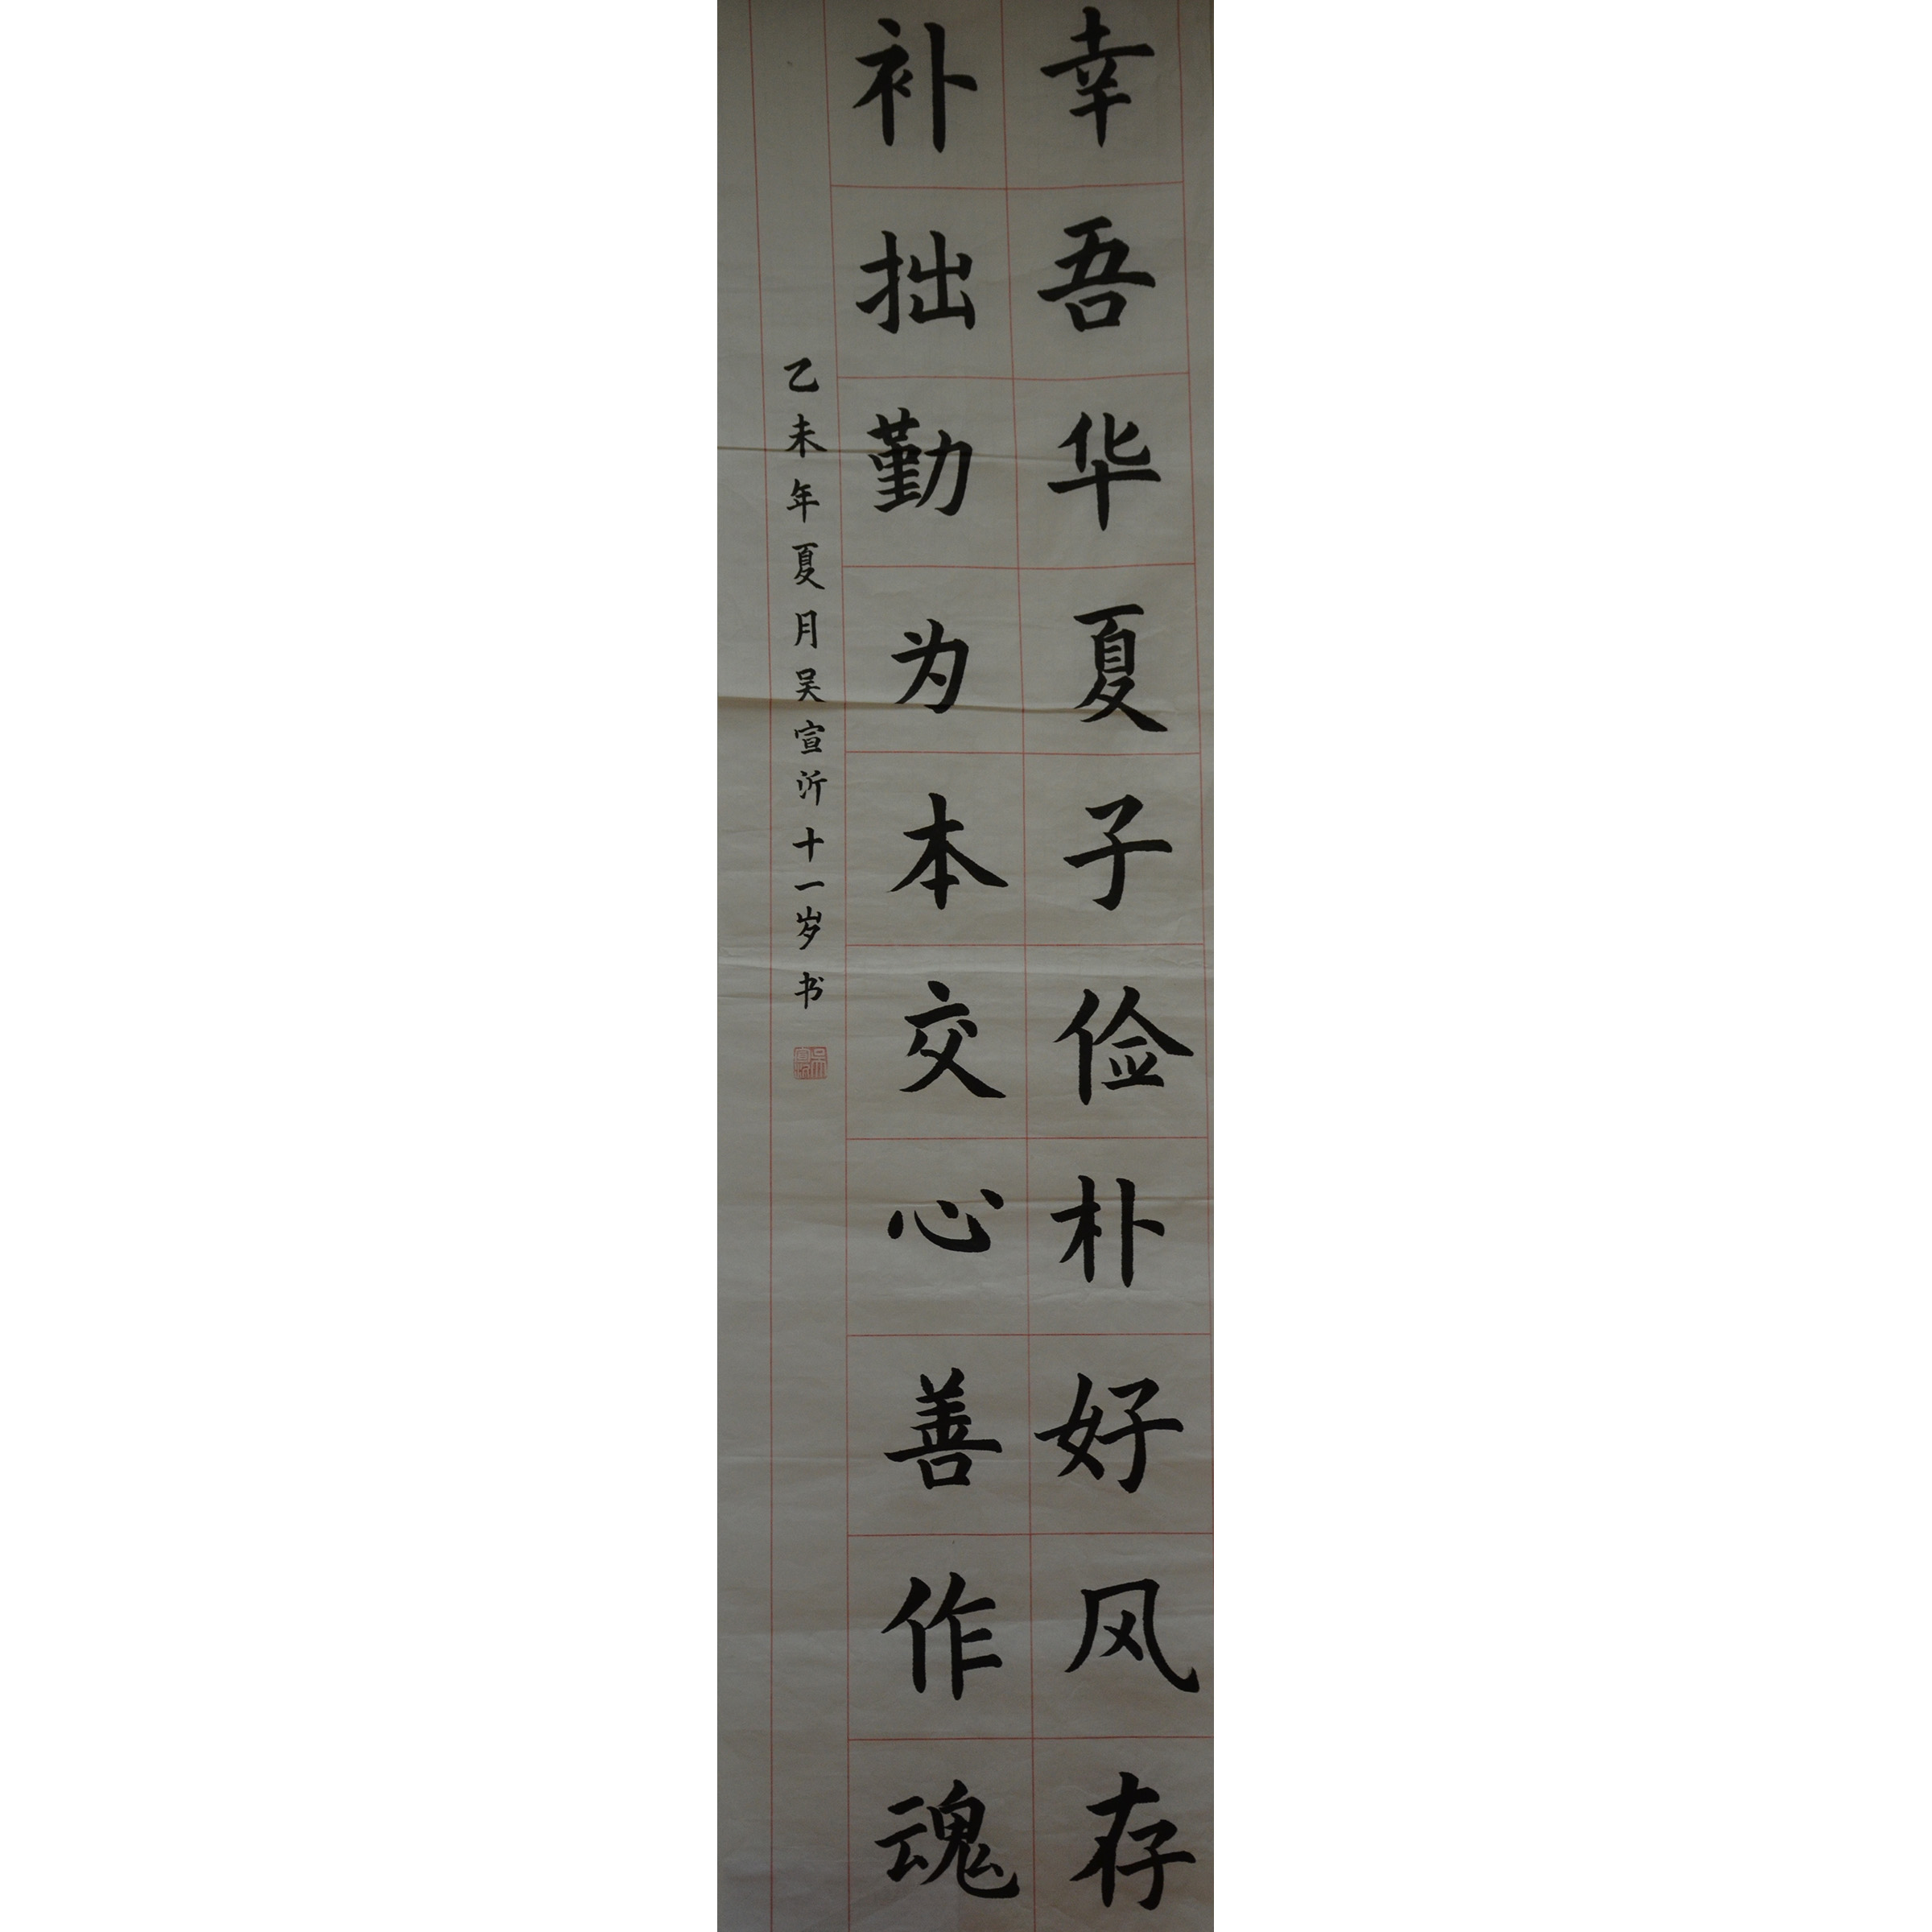 幸吾华夏子俭朴好风存
补拙勤为本交心善作魂
乙未年夏月吴宣沂十一岁书